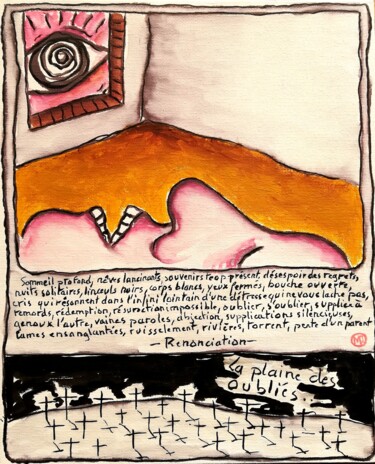 Sommeil profond, rêves lancinants, souvenirs trop présent, désespoir des regrets,
nuits solitaires, linceuls noirs, corps blancs, yeux fermés, bouche ouverte,
cris qui résonnent dans l'infini lointain d'une détresse qui ne vous lache pas,
remords, rédemption, résurection impossible, oublier, s'oublier, supplier à
genoux l'autre, vaines paroles, abjection, supplications silencieuses,
larmes ensanglantées, ruissellement, rivières, torrent, perte d'un parent
- Renonciation -
La plaine des
oubliés...